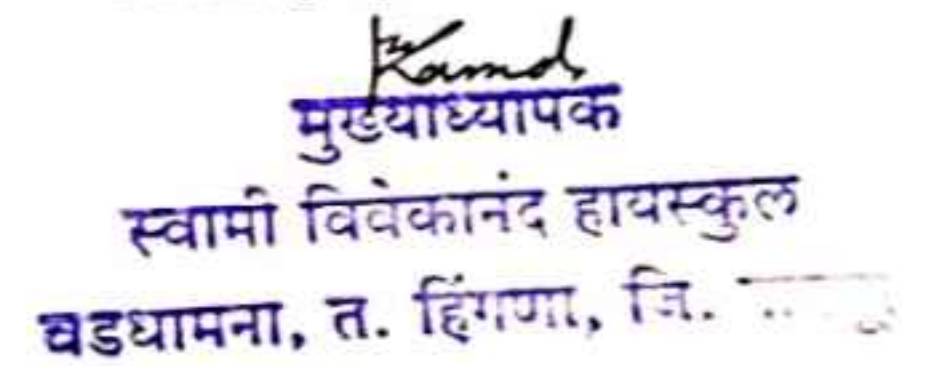 मुख्याध्यापक
स्वामी विवेकानंद हायस्कुल
वडधामना, त. हिंगणा, जि.